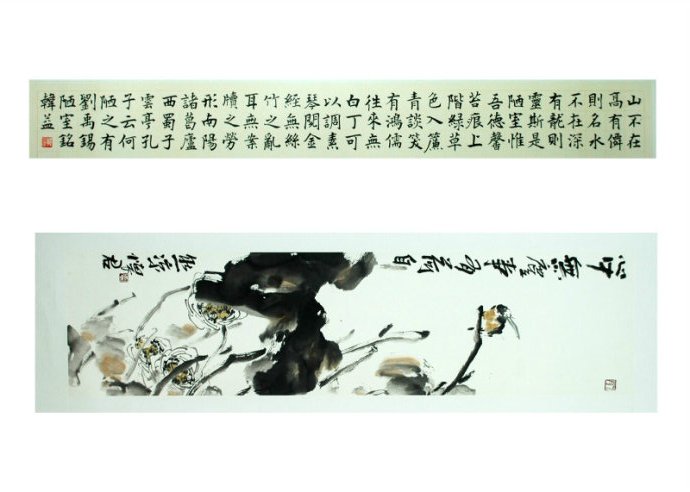 山不在
高有僊
則名水
不在深
有龍則
靈斯是
陋室惟
吾德馨
苔痕上
階綠草
色入簾
青談笑
有鴻儒
往來無
白丁可
以調素
琴閱金
經無絲
竹之亂
耳無案
牘之勞
形南陽
諸葛廬
西蜀子
雲亭孔
子云何
陋之有
劉禹錫
陋室銘
韓益